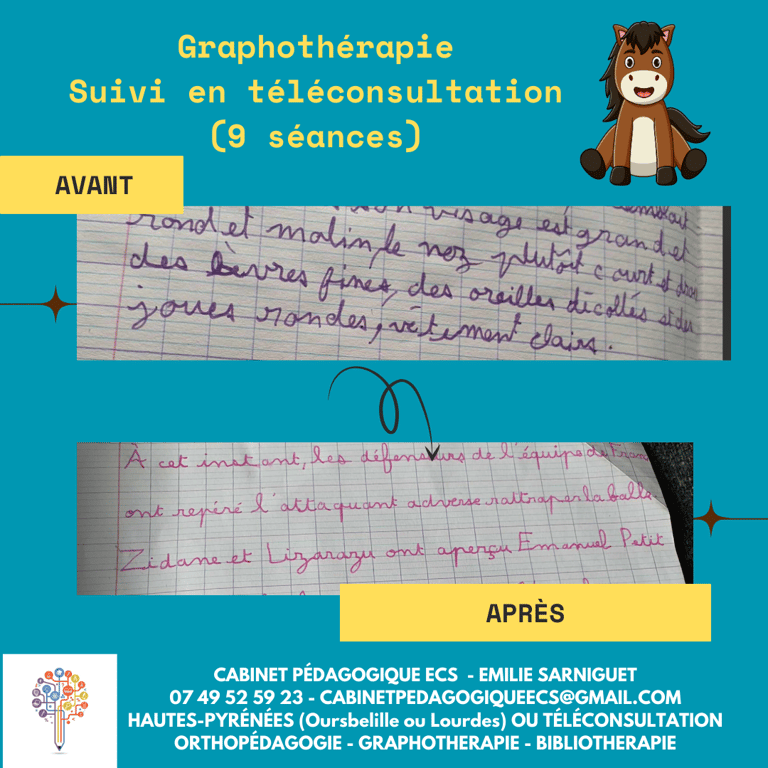 Graphothérapie
Suivi en téléconsultation
(9 séances)
AVANT
son visage est grand et
rond et malin, le nez plutôt court et droit
des lèvres fines, des oreilles décollés et des
joues rondes, vêtement clairs.
À cet instant, les défenseurs de l'équipe de Fran
ont repéré l'attaquant adverse rattraper la balle.
Zidane et Lizarazu ont aperçu Emanuel Petit
APRÈS
CABINET PÉDAGOGIQUE ECS - EMILIE SARNIGUET
07 49 52 59 23 - CABINETPEDAGOGIQUEECS@GMAIL.COM
HAUTES-PYRÉNÉES (Oursbelille ou Lourdes) OU TÉLÉCONSULTATION
ORTHOPÉDAGOGIE - GRAPHOTHERAPIE - BIBLIOTHERAPIE